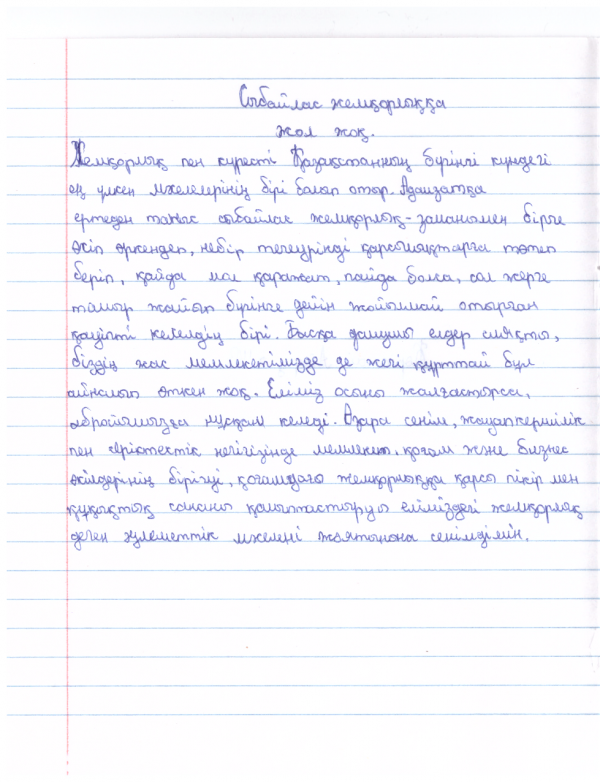 Сыбайлас жемқорлыққа
жол жоқ.
Жемқорлық пен күресті Қазақстанның бүгінгі күндегі
ең үлкен мәселелерінің бірі болып отыр. Адамзатқа
ертеден таныс сыбайлас жемқорлық - заманымен бірге
өсіп өркендеп, небір тегеурінді қарсылықтарға төтеп
беріп, қайда мол қаражат, пайда болса, сол жерге
тамыр жайып бүгінге дейін жойылмай отырған
қауіпті кеселдің бірі. Басқа дамушы елдер сияқты,
біздің жас мемлекетімізде де жегі құрттай бұл
айналып өткен жоқ. Еліміз осыны жалғастырса,
абройымызға нұқсан келеді. Өзара сенім, жауапкершілік
пен серіктестік негізінде мемлекет, қоғам және бизнес
өкілдерінің бірігуі, қоғамдағы жемқорлыққа қарсы пікір мен
құқықтық сананы қалыптастыруы еліміздегі жемқорлық
деген әлеметтік мәселені жоятынына сенімдімін.